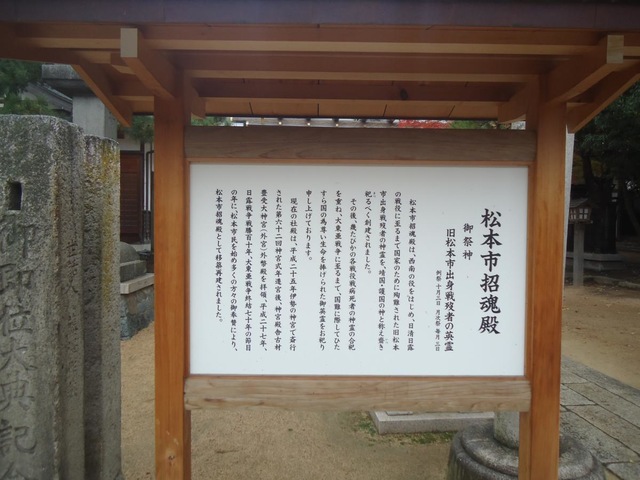 松本市招魂殿
御祭神
旧松本市出身戦歿者の英霊
例祭 十月三日 月次祭 毎月三日
松本市招魂殿は、西南の役をはじめ、日清日露
の戦役に至るまで国家のために殉難された旧松本
市出身戦歿者の神霊を、靖国・護国の神と称え齋き
祀るべく創建されました。
その後、幾たびかの各戦役戦病死者の神霊の合祀
を重ね、大東亜戦争に至るまで、国難に際してひた
すら国の為尊い生命を捧げられた御英霊をお祀り
申し上げております。
現在の社殿は、平成二十五年伊勢の神宮で斎行
された第六十二回神宮式年遷宮後、神宮殿舎古材
豊受大神宮(外宮)外幣殿を拝領、平成二十七年、
日露戦争戦勝百十年、大東亜戦争終結七十年の節目
の年に、松本市民を始め多くの方々の御奉賛により、
松本市招魂殿として移築再建されました。
位大典記